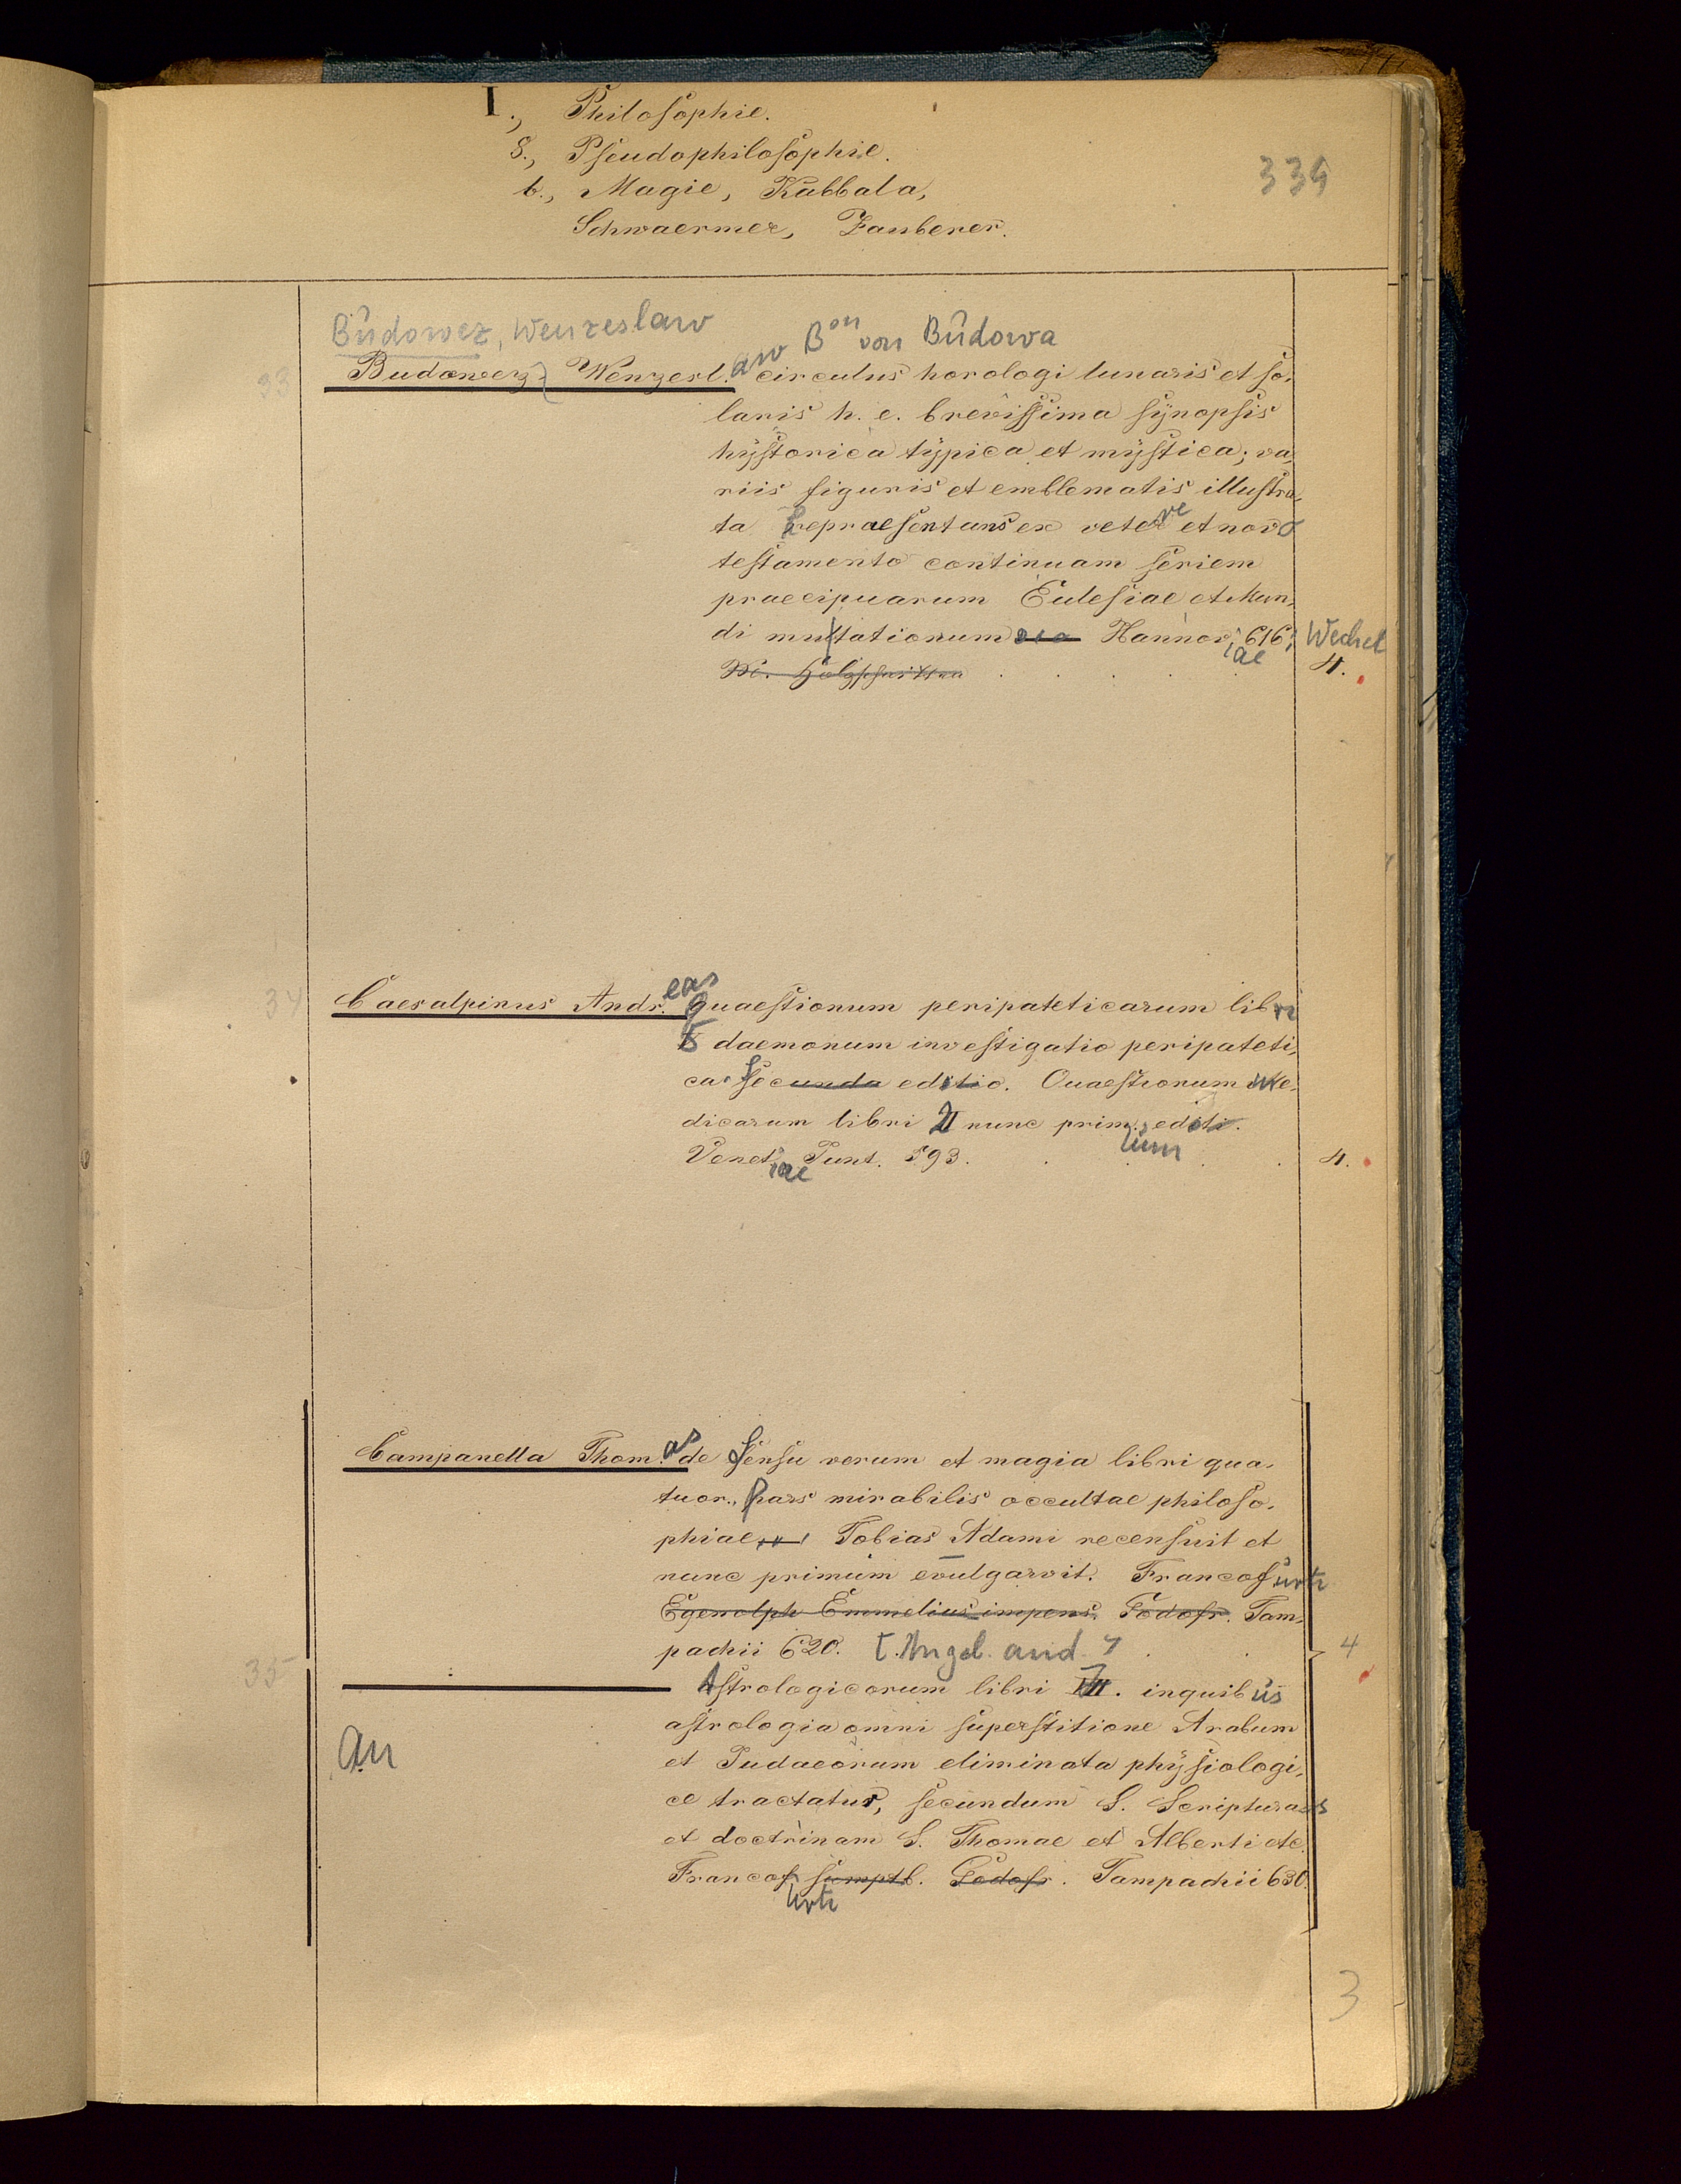 I., Philosophie.
8., Pseudophilosophie.
b., Magie, Kabbala,
Schwaermer, Zauberer.
339
Budowez, Wenzeslaw Bon von Budowa
33 Budowerz Wenzerl.aw circulus horologi lunaris et so-
laris h. e. brevissima synopsis
hystorica typica et mystica; va-
riis figuris et emblematis illustra-
ta repraesentans ex vetere et novo
testamento continuam seriem
praecipuarum Eulesiae et Mun-
di mutationum Hannoviae 616; Wechel
M. Holzschnitten 4.
34 Caesalpinus Andr.eas Quaestionum peripateticarum libri
5 daemonum investigatio peripateti-
ca secunda editio. Quaestionum me-
dicarum libri II nunc primum editi.
Venetiae Junt. 593. 4.
Campanella Thom.as de sensu rerum et magia libri qua-
tuor., pars mirabilis occultae philoso-
phiae Tobias Adami recensuit et
nunc primum evulgarvit. Francofurti
Egenolph Emmelius impens. Godofr. Tam-
pachii 620. 4
35 Astrologicorum libri VII. in quibus
astrologia omni superstitione Arabum
an et Judaeorum eliminata physiologi-
ce tractatur, secundum S. Scripturas
et doctrinam S. Thomae et Alberti etc
Francofurti sumptb. Godofr. Tampachii 630.
3